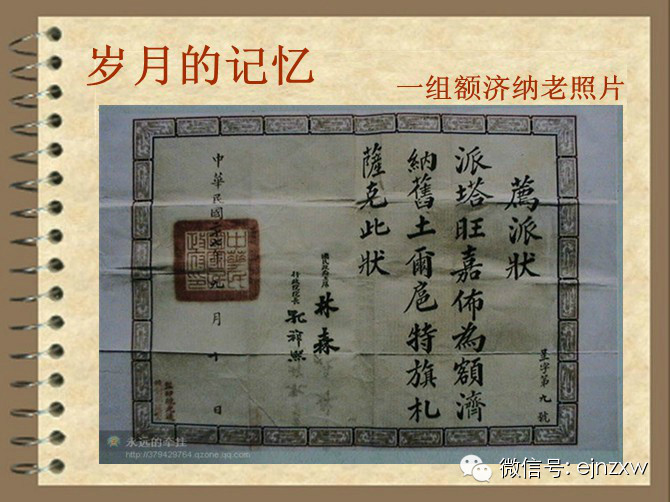 岁月的记忆
一组额济纳老照片
薦派狀
派塔旺嘉佈為額濟
納舊土爾扈特旗札
薩克此狀
國民政府主席 林森
行政院院長 孔祥熙
中華民國 年 月 日
字第九號
永远的牵挂
http://379429764.qzone.qq.com
微信号: ejnzxw